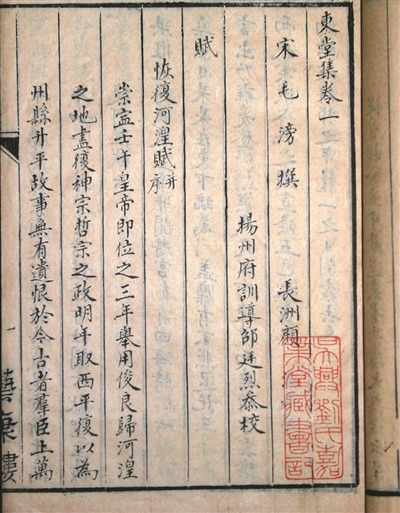 東堂集卷上
宋毛滂撰 長洲顧
揚州府訓導邵廷烈恭校
賦
恢復河湟賦并序
崇寧壬午皇帝即位之三年舉用俊良歸河湟
之地盡復神宗哲宗之政明年取西平復以為
州縣升平故事無有遺恨於今古著羣臣上萬
一
藝海樓
吳興劉氏嘉
業堂藏書記